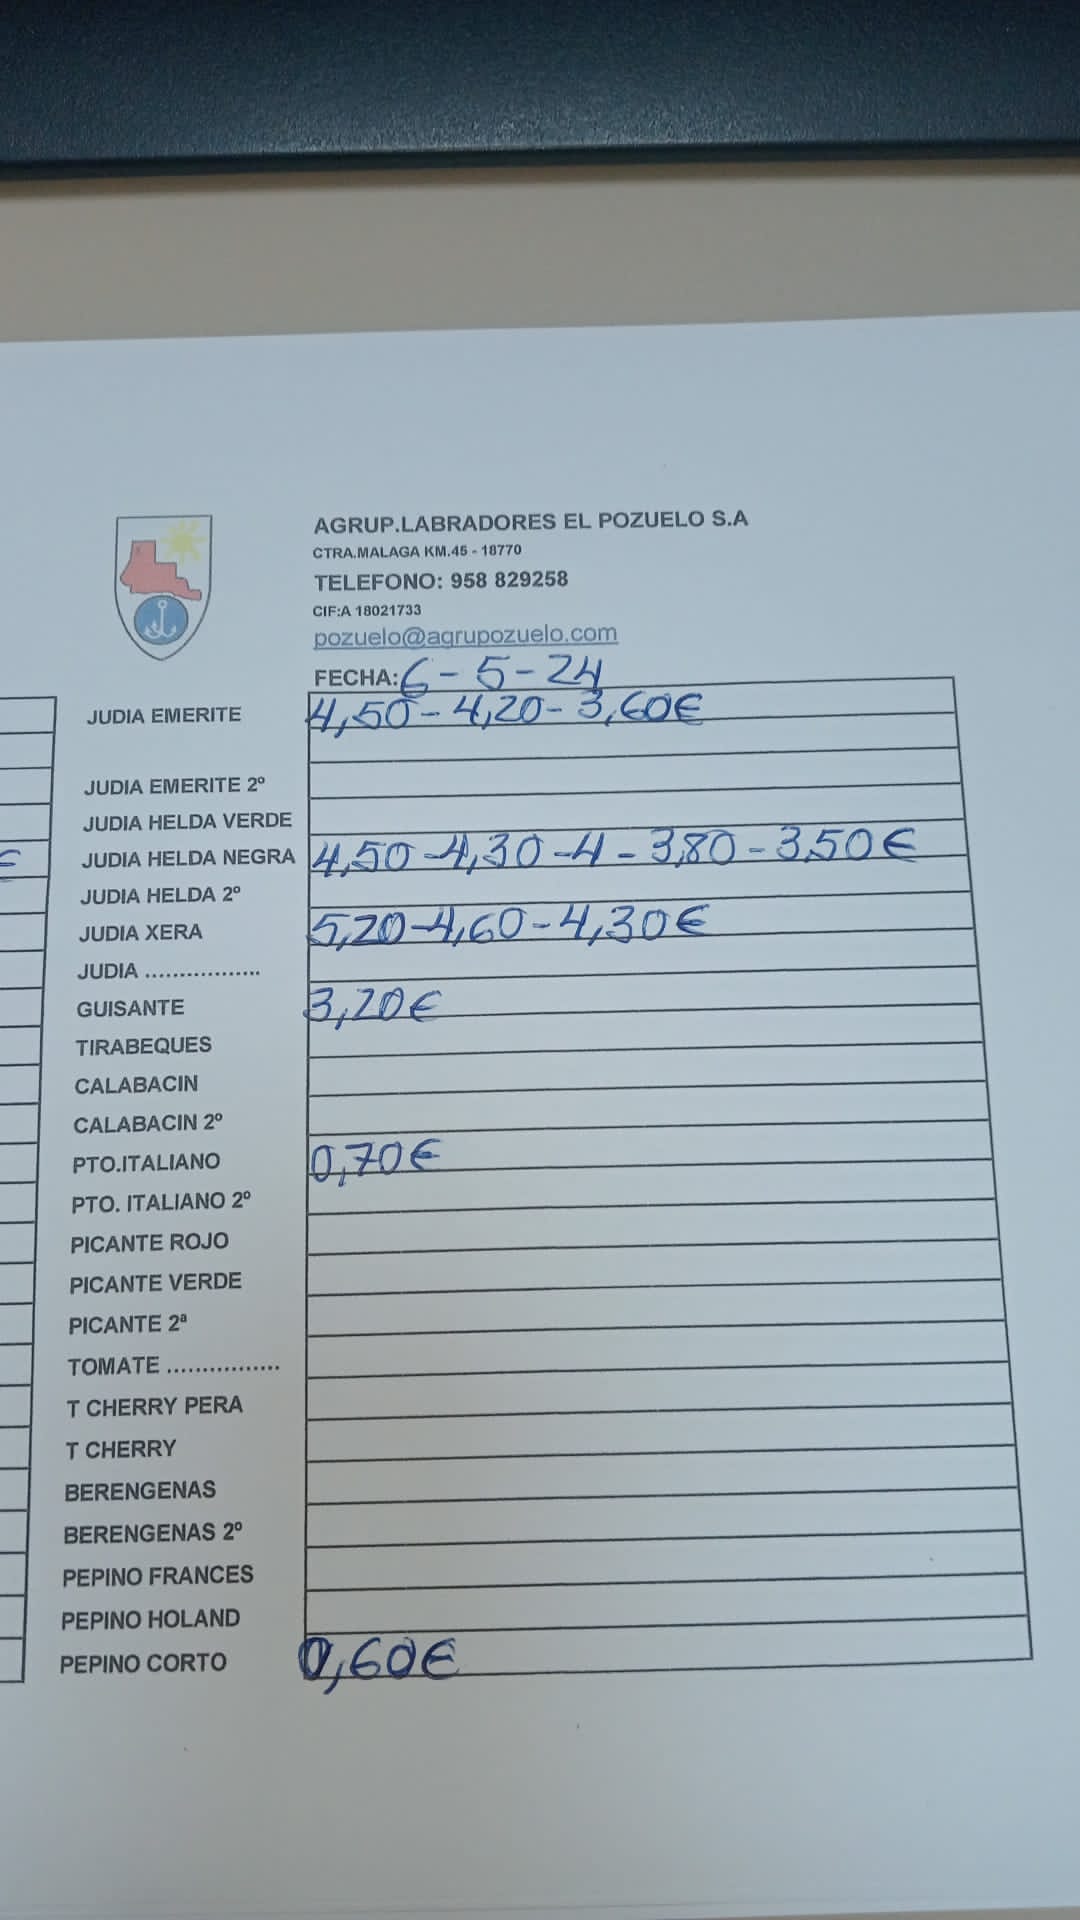 AGRUP.LABRADORES EL POZUELO S.A
CTRA.MALAGA KM.45 - 18770
TELEFONO: 958 829258
CIF:A 18021733
pozuelo@agrupozuelo.com
FECHA: 6-5-24
JUDIA EMERITE 4,50-4,20-3,60€
JUDIA EMERITE 2º
JUDIA HELDA VERDE
€
JUDIA HELDA NEGRA 4,50-4,30-4-3,80-3,50€
JUDIA HELDA 2º
JUDIA XERA 5,20-4,60-4,30€
JUDIA .................
GUISANTE 3,20€
TIRABEQUES
CALABACIN
CALABACIN 2º
PTO.ITALIANO 0,70€
PTO. ITALIANO 2º
PICANTE ROJO
PICANTE VERDE
PICANTE 2ª
TOMATE ................
T CHERRY PERA
T CHERRY
BERENGENAS
BERENGENAS 2º
PEPINO FRANCES
PEPINO HOLAND
PEPINO CORTO 0,60€